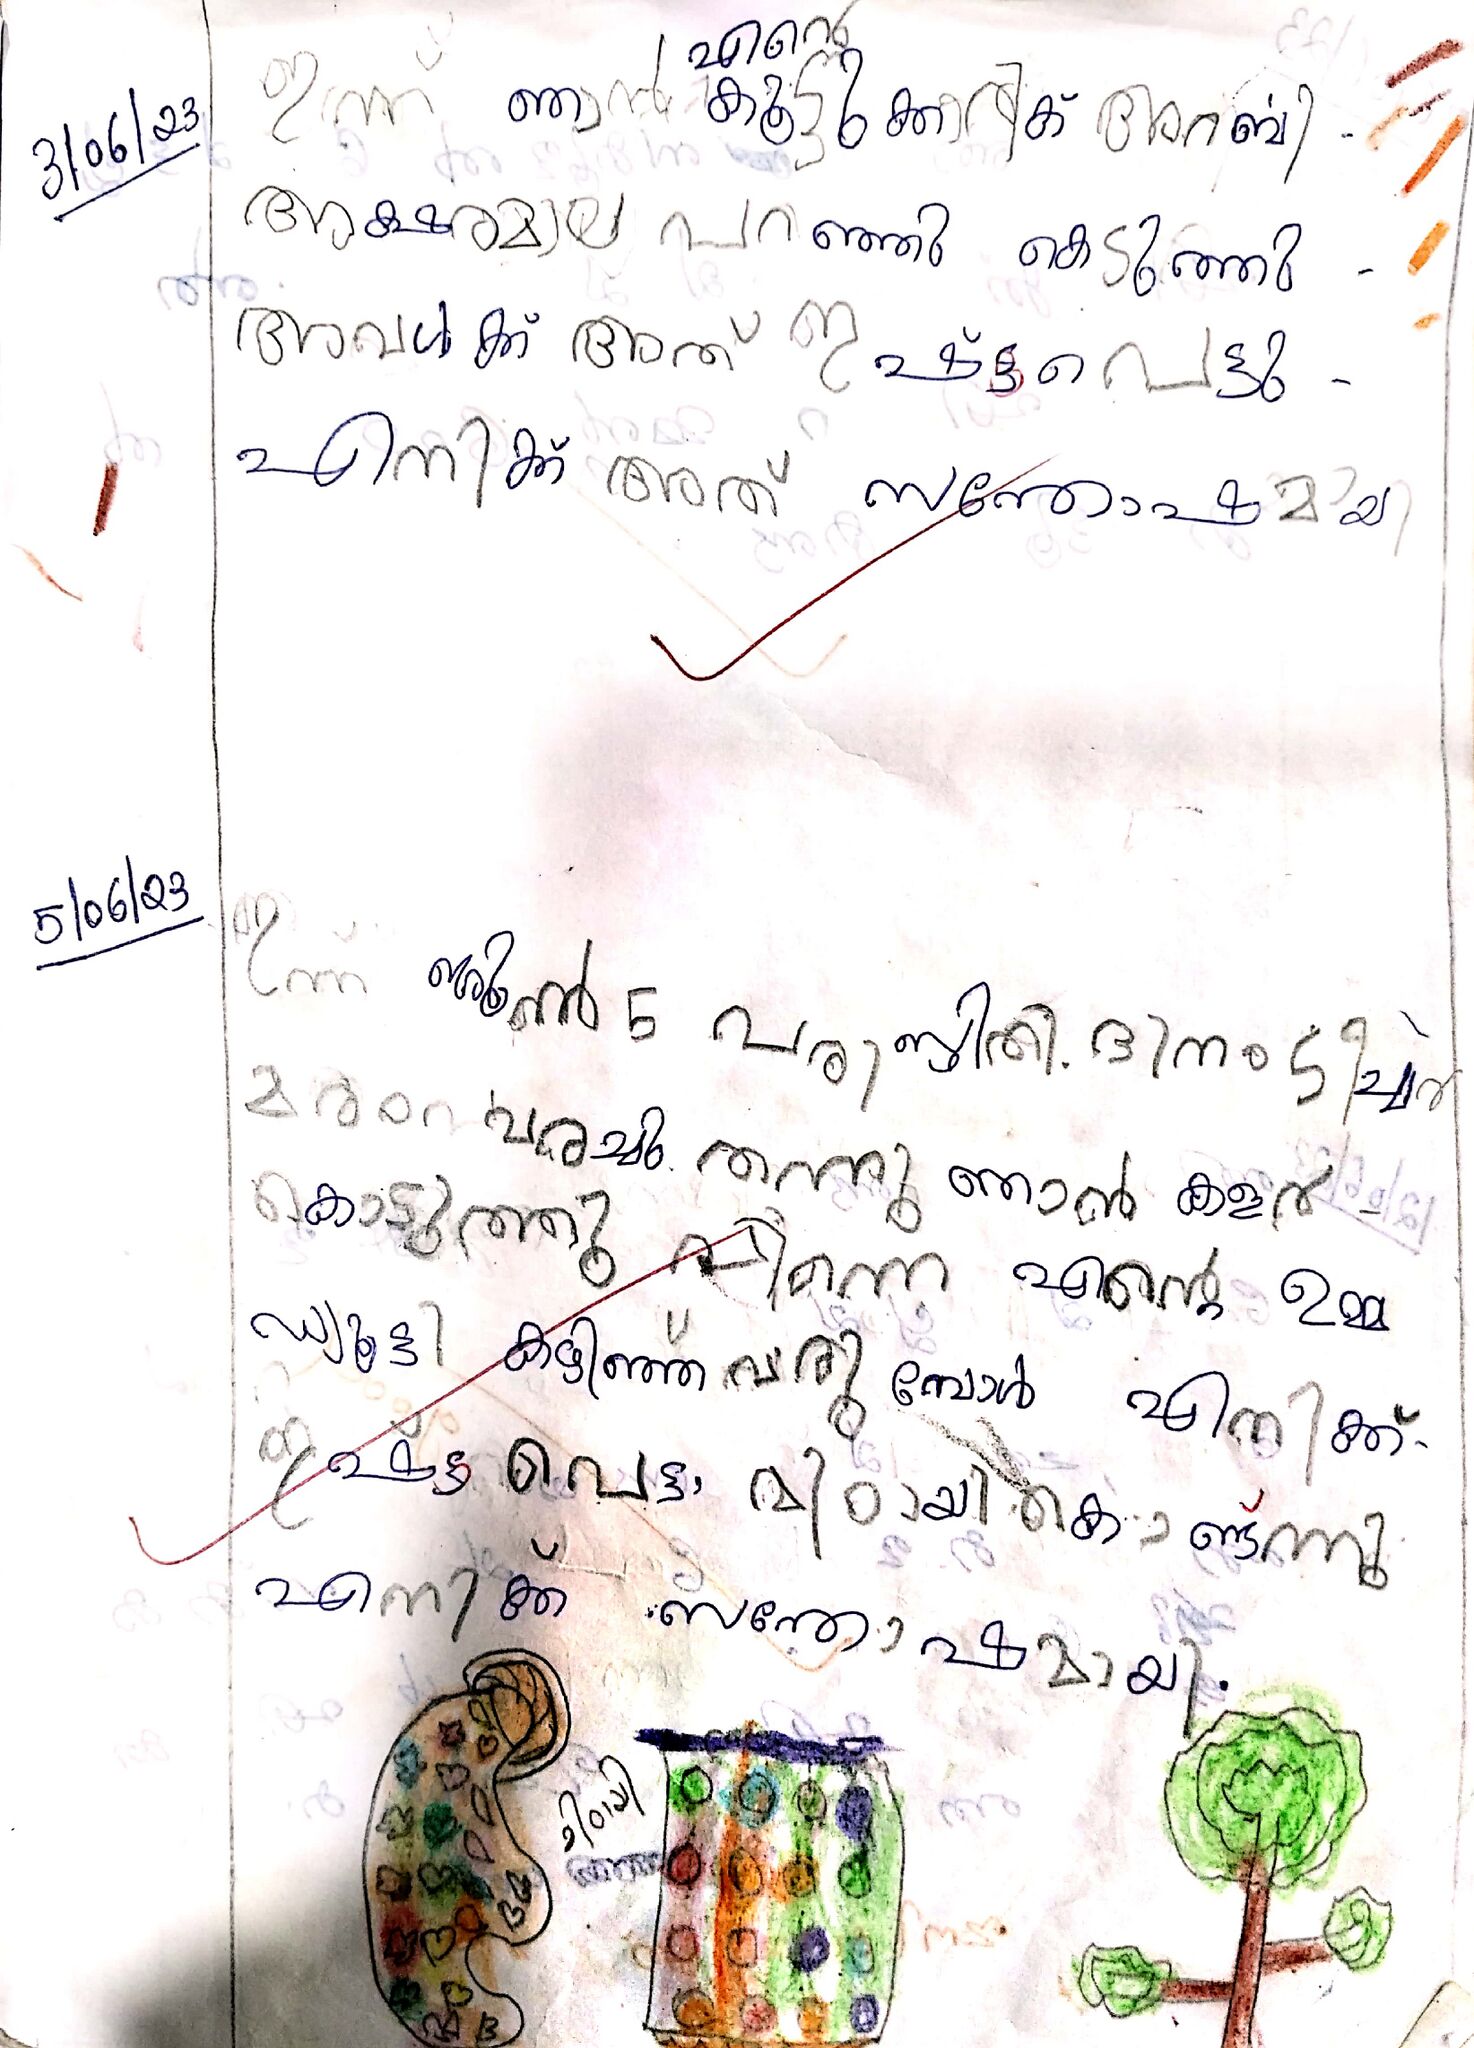 എന്റെ
3/06/23 ഇന്ന് ഞാൻ കൂട്ടുക്കാരിക് അറബി -
അക്ഷരമാല പറഞ്ഞു കെടുത്തു -
അവൾക്ക് അത് ഇഷ്ട്ടപെട്ടു -
എനിക്ക് അത് സന്തോഷമായി
5/06/23 ഇന്ന് ജൂൺ 5 പരിസ്ഥിതി. ദിനം ടീച്ചർ
മരം വരച്ചു തന്നു ഞാൻ കളർ
കൊടുത്തു പിന്നെ എന്റെ ഉമ്മ
ഡ്യൂട്ടി കഴിഞ്ഞ് വരുമ്പോൾ എനിക്ക്-
ഇഷ്ട്ട പെട്ട മിഠായി കൊണ്ട്ന്നു
എനിക്ക് സന്തോഷമായി.
മിഠായി